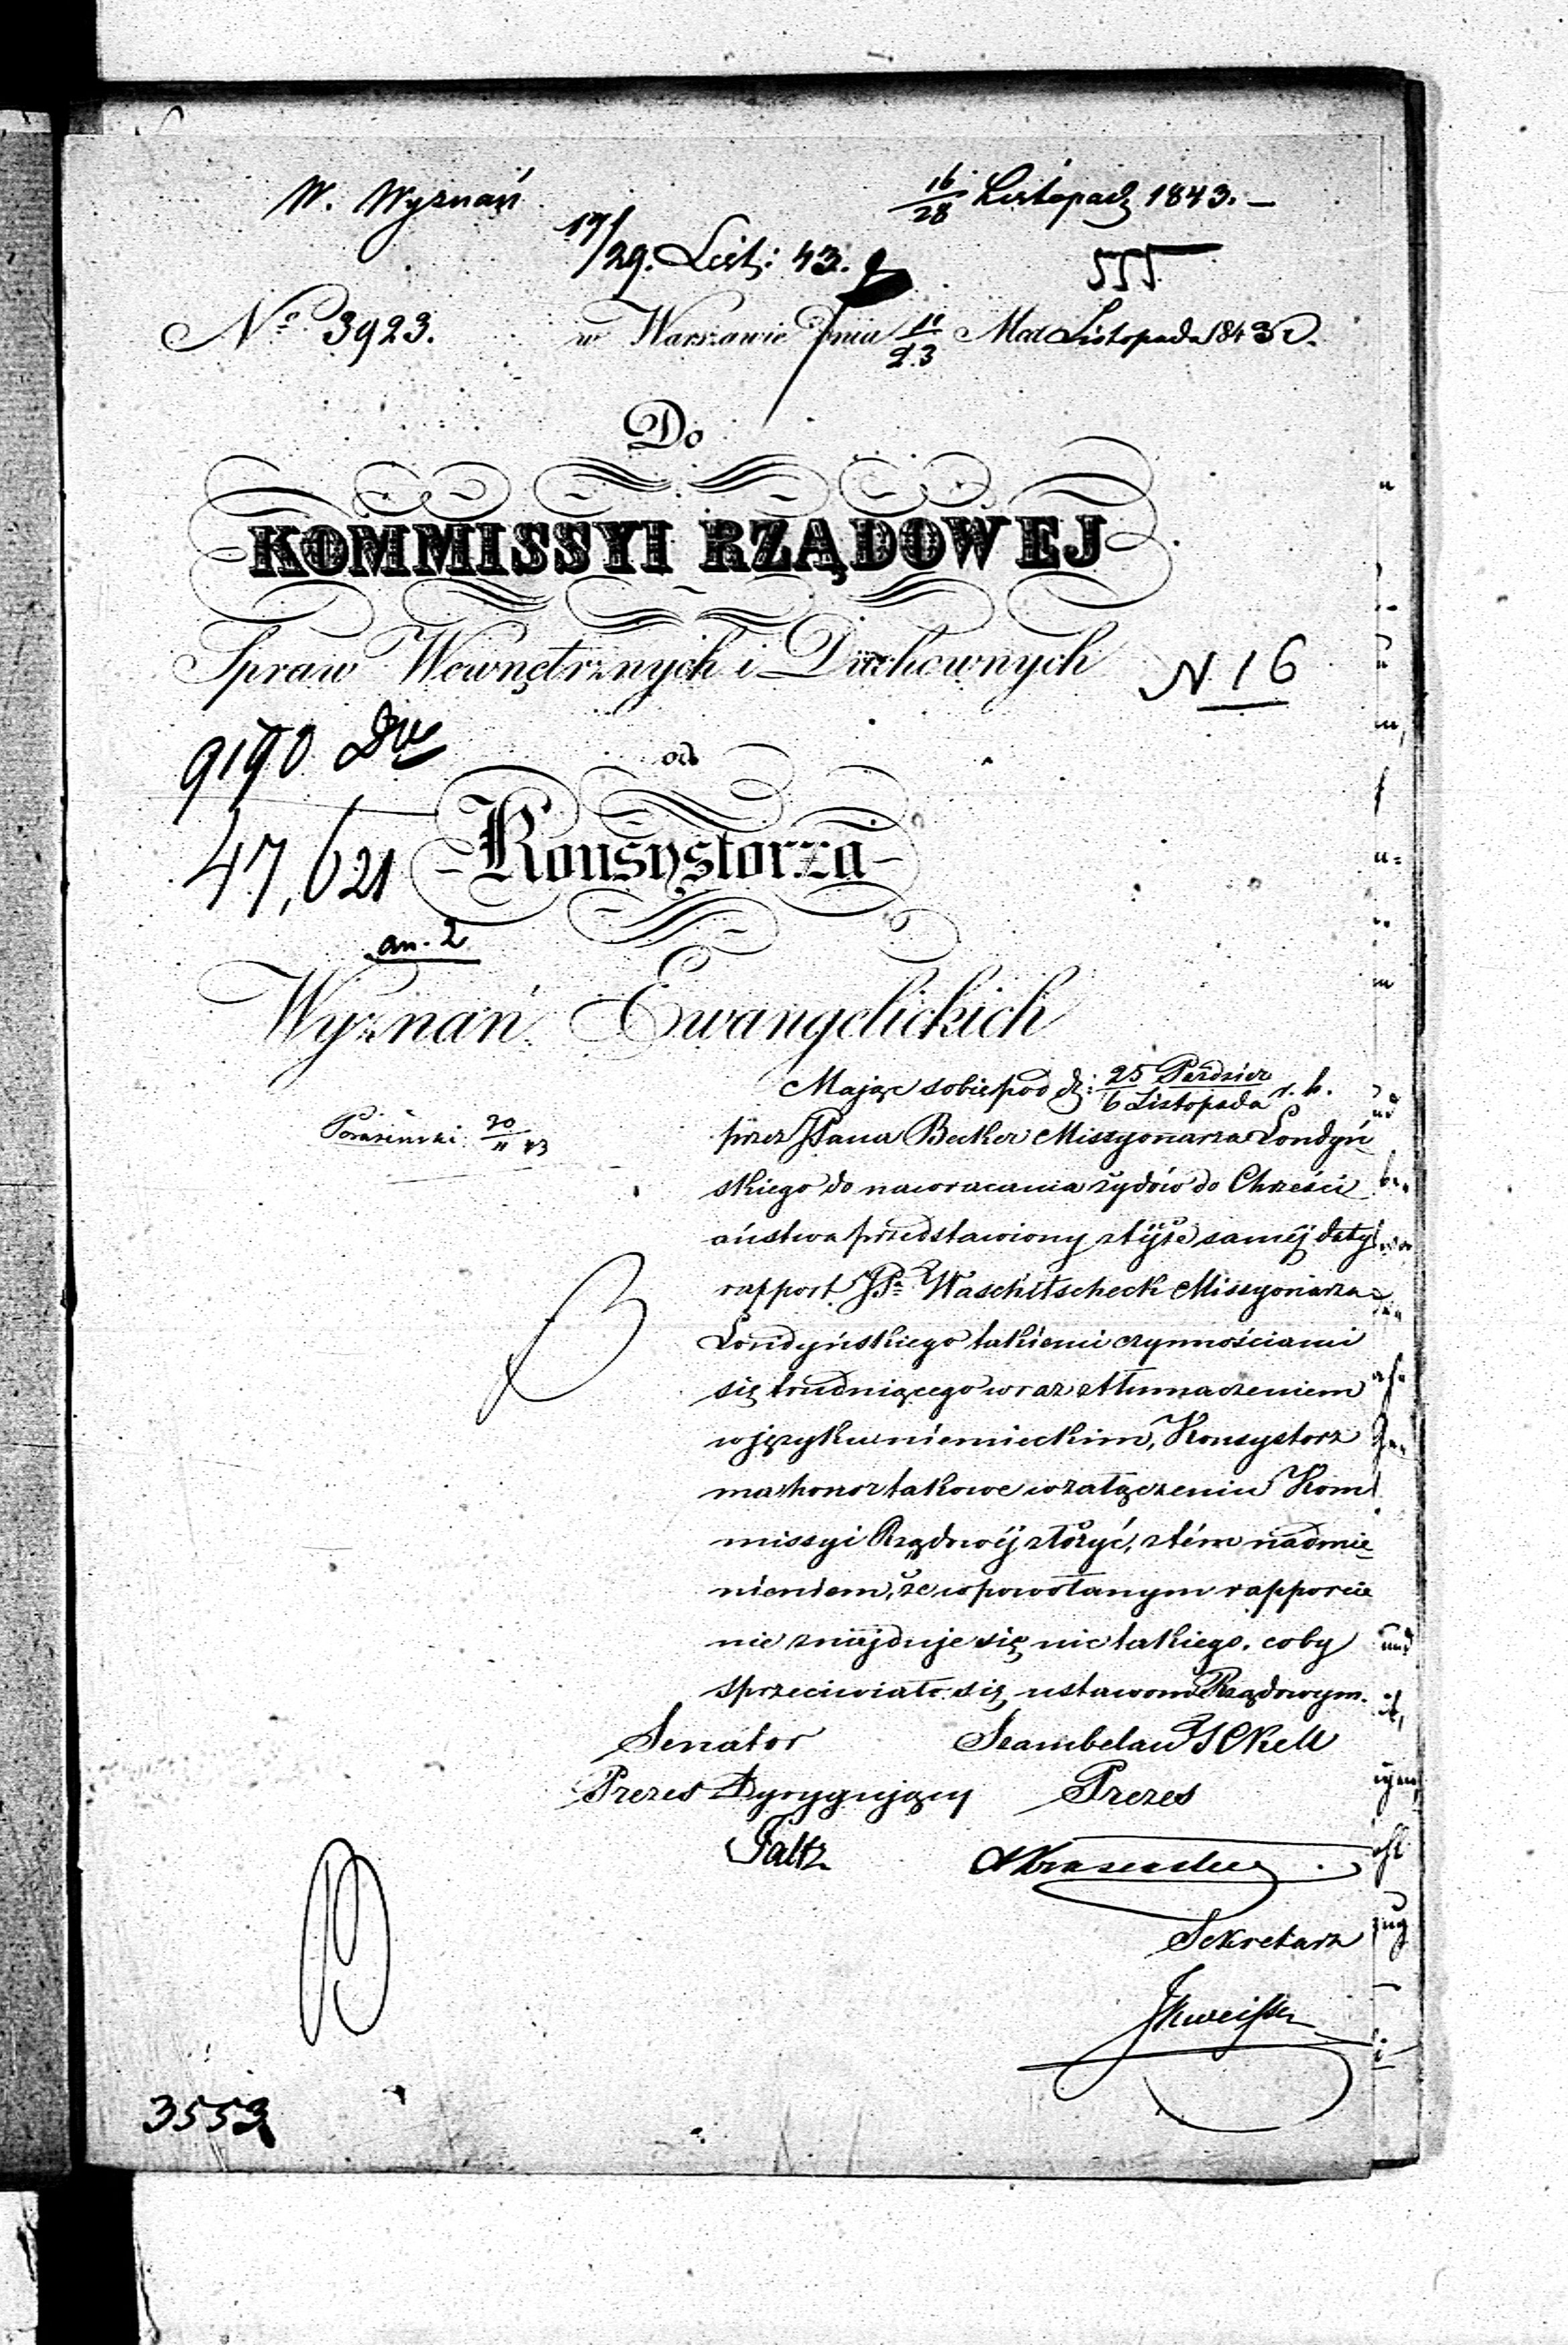 W. Wyznań
16/28 Listopad 1843. —
17/29. List: 43.
555
No 3923.
w Warszawie dnia 11/23 Mca Listopada 1843 r.
Do
KOMMISSYI RZĄDOWEJ
Spraw Wewnętrznych i Duchownych
N 16
9190
47,621
od
Konsystorza
an. 2
Wyznań Ewangelickich
Mając sobie pod d: 25 Paździer / 6 Listopada r. b.
20/11 43
przez JPana Becker Missyonarza Londyń
skiego do nawracania żydów do Chrześci
aństwa przedstawiony z tyże saméj daty
rapport JPa Waschitscheck Missyonarza
Londyńskiego takiemi czynnościami
się trudniącego wraz z tłumaczeniem
w języku niemieckim, Konsystorz
ma honor takowe w załączeniu Kom
missyi Rządowéj złożyć, z tém nadmie
nieniem, że w powołanym rapporcie
nie znajduje się nic takiego, coby
sprzeciwiało się ustawom Rządowym.
Senator
Szambelan JCKM
Prezes Dyrygujący
Prezes
Faltz
Sekretarz
3553